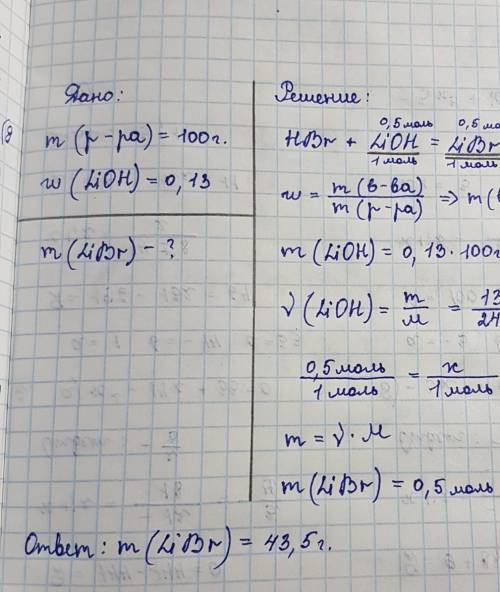 8
Дано:
m (р-ра) = 100г.
w (LiOH) = 0,13
m (LiBr) - ?
Решение:
0,5 моль 0,5 мол
HBr + LiOH = LiBr
1 моль 1 моль
w = m (в-ва) / m (р-ра) => m (
m (LiOH) = 0,13 · 100г
ν (LiOH) = m / M = 13 / 24
0,5 моль / 1 моль = x / 1 моль
m = ν · M
m (LiBr) = 0,5 моль
Ответ: m (LiBr) = 43,5 г.